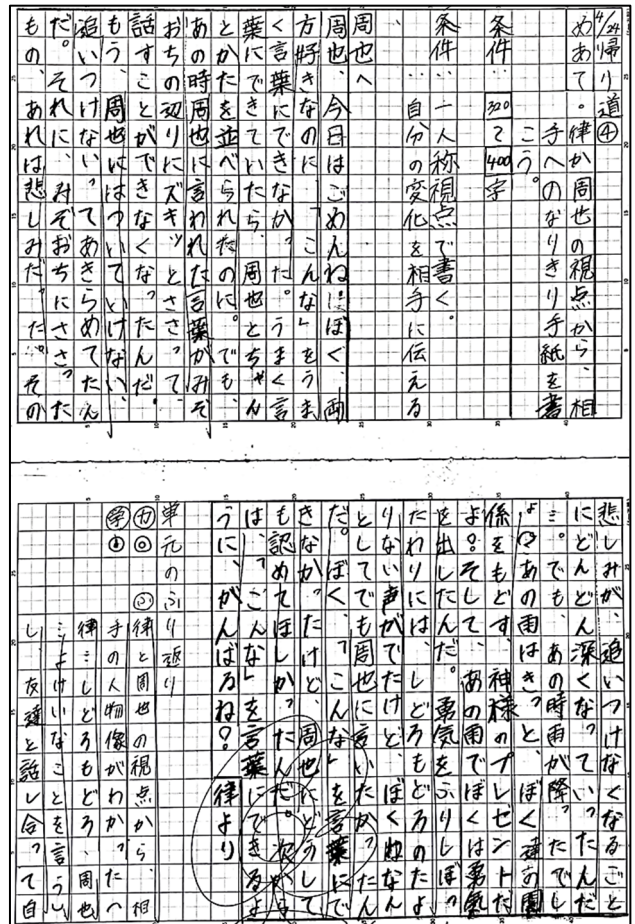 4/24 帰り道④
めあて。律か周也の視点から、相
手へのなりきり手紙を書
こう。
条件… 320て400字
条件…一人称視点で書く。
自分の変化を相手に伝える
周也へ
周也、今日はごめんね…ぼく、両
方好きなのに「こんな」をうま
く言葉にできなかった。うまく言
葉にできていたら、周也とちゃん
とかたを並べられたのに。でも、
あの時周也に言われた言葉がみぞ
おちの辺りにズキッとささって
話すことができなくなったんだ。
もう、周也にはついていけない、
追いつけない。ってあきらめてたん
だ。それに、みぞおちにささった
もの、あれは悲しみだった。その
悲しみが、追いつけなくなるごと
にどんどん深くなっていったんだ
…。でも、あの時雨が降ったでし
ょ?あの雨はきっと、ぼく達の関
係をもどす、神様のプレゼントだ
よ?そして、あの雨でぼくは勇気
を出したんだ。勇気をふりしぼっ
たわりには、しどろもどろのたよ
りない声がでたけど、ぼくぬなん
としてでも周也に言いたかったん
だ。ぼく、「こんな」を言葉にで
きなかったけど、周也にどうして
も認めてほしかったんだ。次からは
は、「こんな」を言葉にできるよ
うに、がんばるね?　律より
単元のふり返り
カ◎　ふ律と周也の視点から、相
学　手の人物像がわかった。へ
律…しどろもどろ、周也
…よけいなことを言う)
し　友達と話し合って自